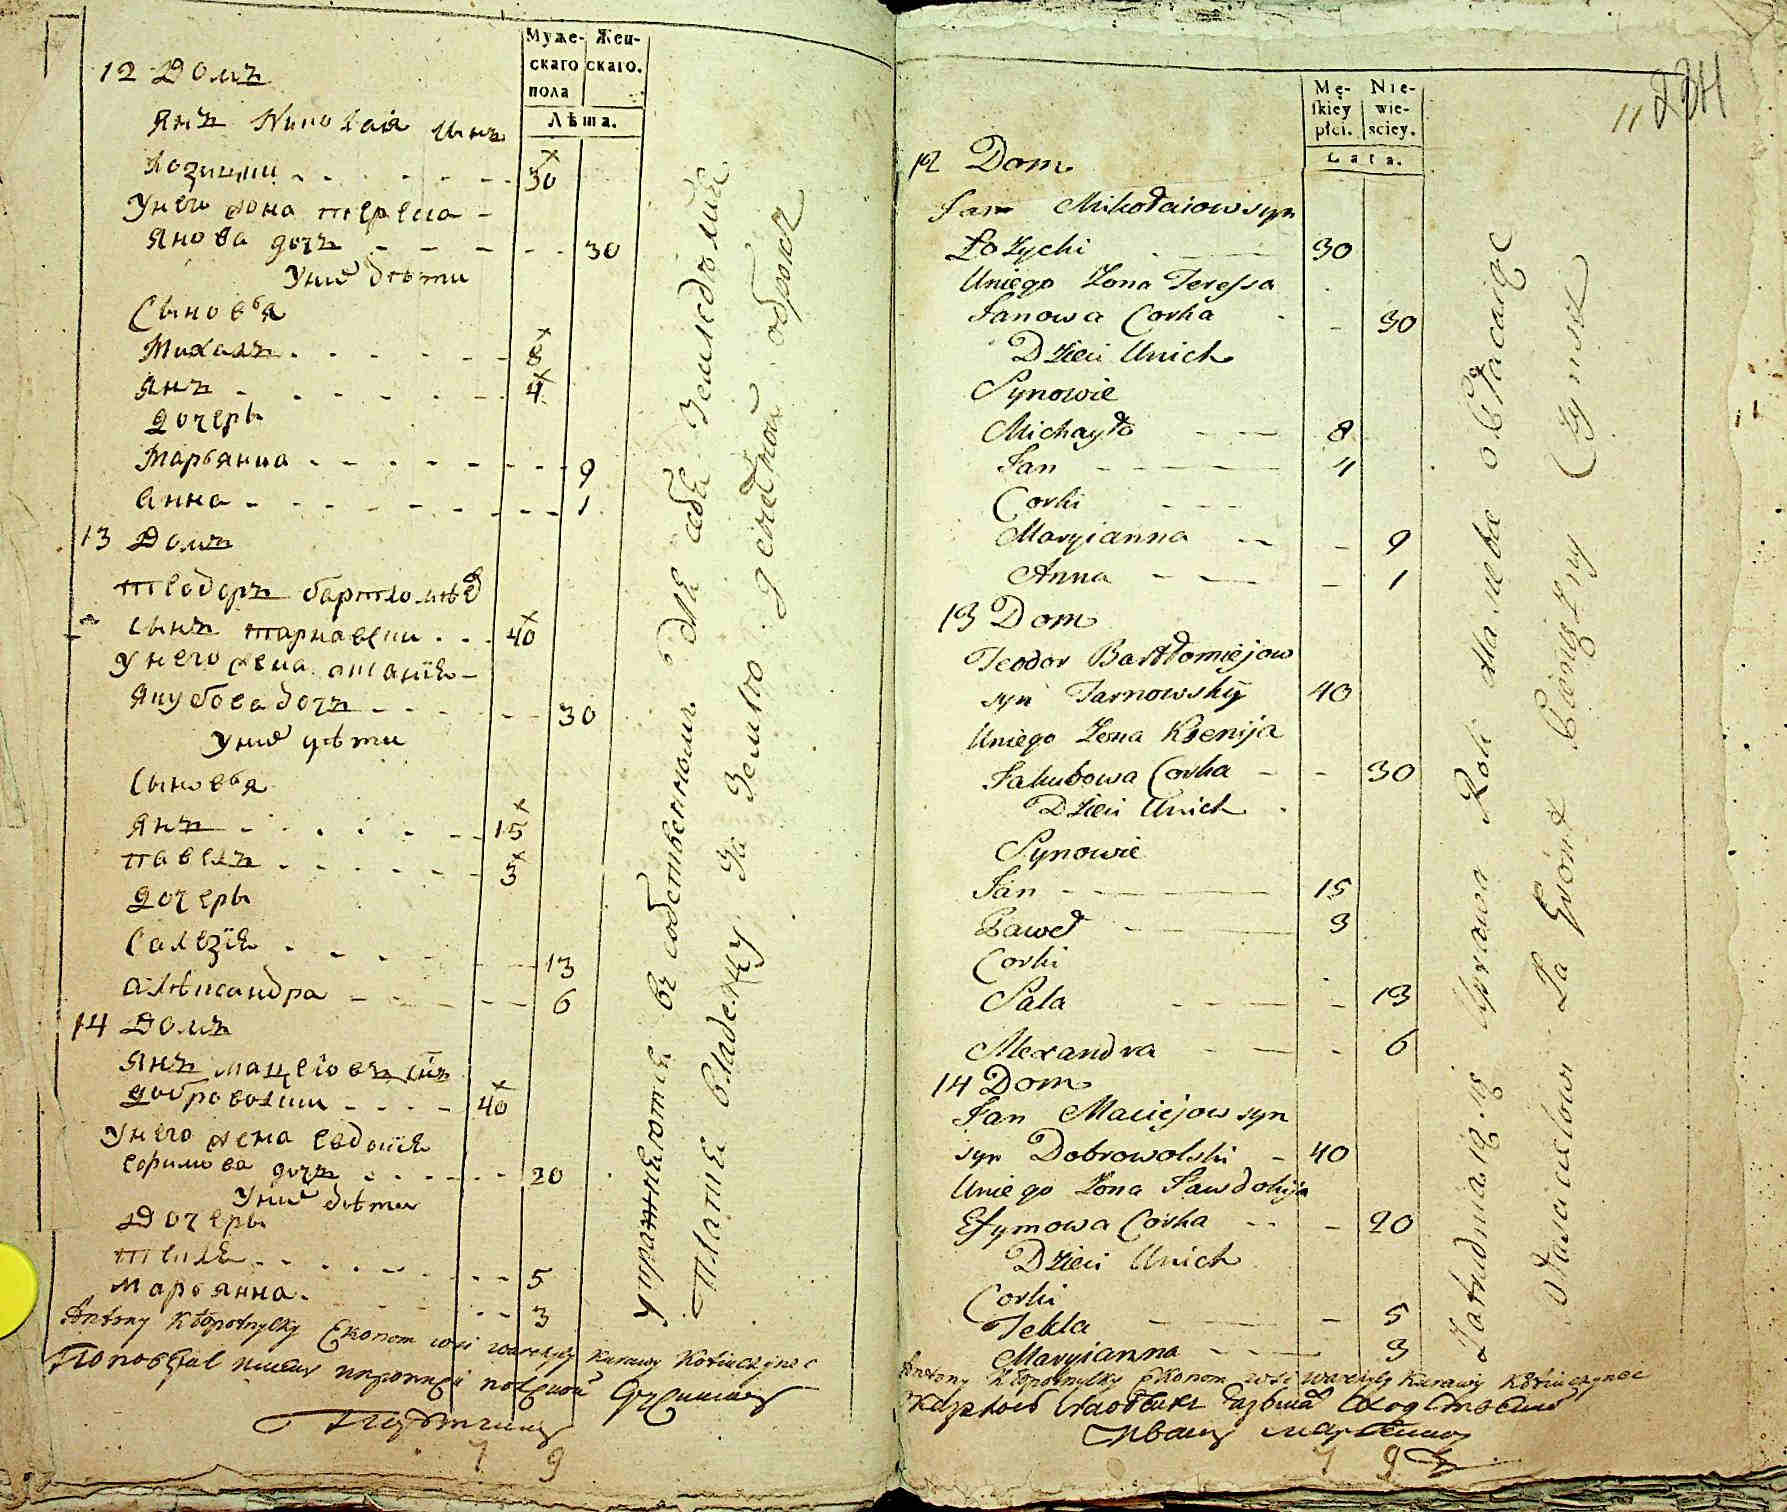 Муже-
скаго
пола
Жен-
скаго.
Лѣта.
12 Домъ
Янъ Николая сынъ
Лозицки 30
У него жона Тереса
Янова дочъ 30
У них дѣти
Сыновья
Михалъ 8
Янъ 4
Дочеры
Марьянна 9
Анна 1
13 Домъ
Теодоръ Бартломѣев
сынъ Тарнавски 40
У него жена
Якубова дочъ 30
У них дѣти
Сыновья
Янъ 15
Павелъ 3
Дочеры
Салезія 13
Алѣксандра 6
14 Домъ
Янъ Мацеіовъ сынъ
Доброволски 40
У него жена Евдокія
Ефимова дочъ 20
У них дѣти
Дочеры
Текля 5
Марьянна 3
упражняются въ собственномъ для себя земледѣліи
владельцу за землю оброка
Antony Kłopotnycky Ekonom wsi
11 234
Mę-
skiey
płci.
Nie-
wie-
sciey.
Lata.
12 Dom
Jan Mikołaiow syn
Łozycki 30
Uniego Zona Teressa
Janowa Corka 30
Dzieci Unich
Synowie
Michayło 8
Jan 4
Corki
Maryianna 9
Anna 1
13 Dom
Teodor Bartłomiejow
syn Tarnowsky 40
Uniego Zona Ksenija
Jakubowa Corka 30
Dzieci Unich
Synowie
Jan 15
Paweł 3
Corki
Sala 13
Alexandra 6
14 Dom
Jan Maciejow syn
syn Dobrowolski 40
Uniego Zona Jawdokija
Efymowa Corka 20
Dzieci Unich
Corki
Tekla 5
Maryianna 3
Zatrudniaią się Uprawą Roli dla siebie
Czynsz
Antony Kłopotnycky Ekonom wsi